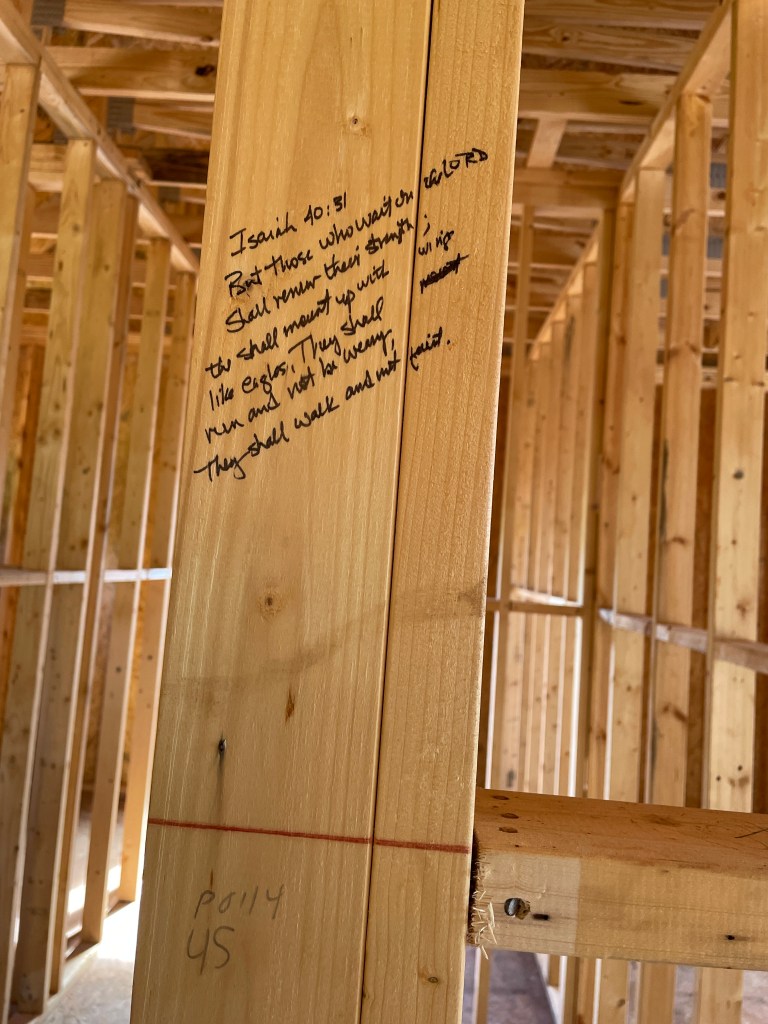 Isaiah 40:31
But those who wait on the LORD
Shall renew their strength;
the shall mount up with wings
like eagles, They shall
run and not be weary,
They shall walk and not faint.
45